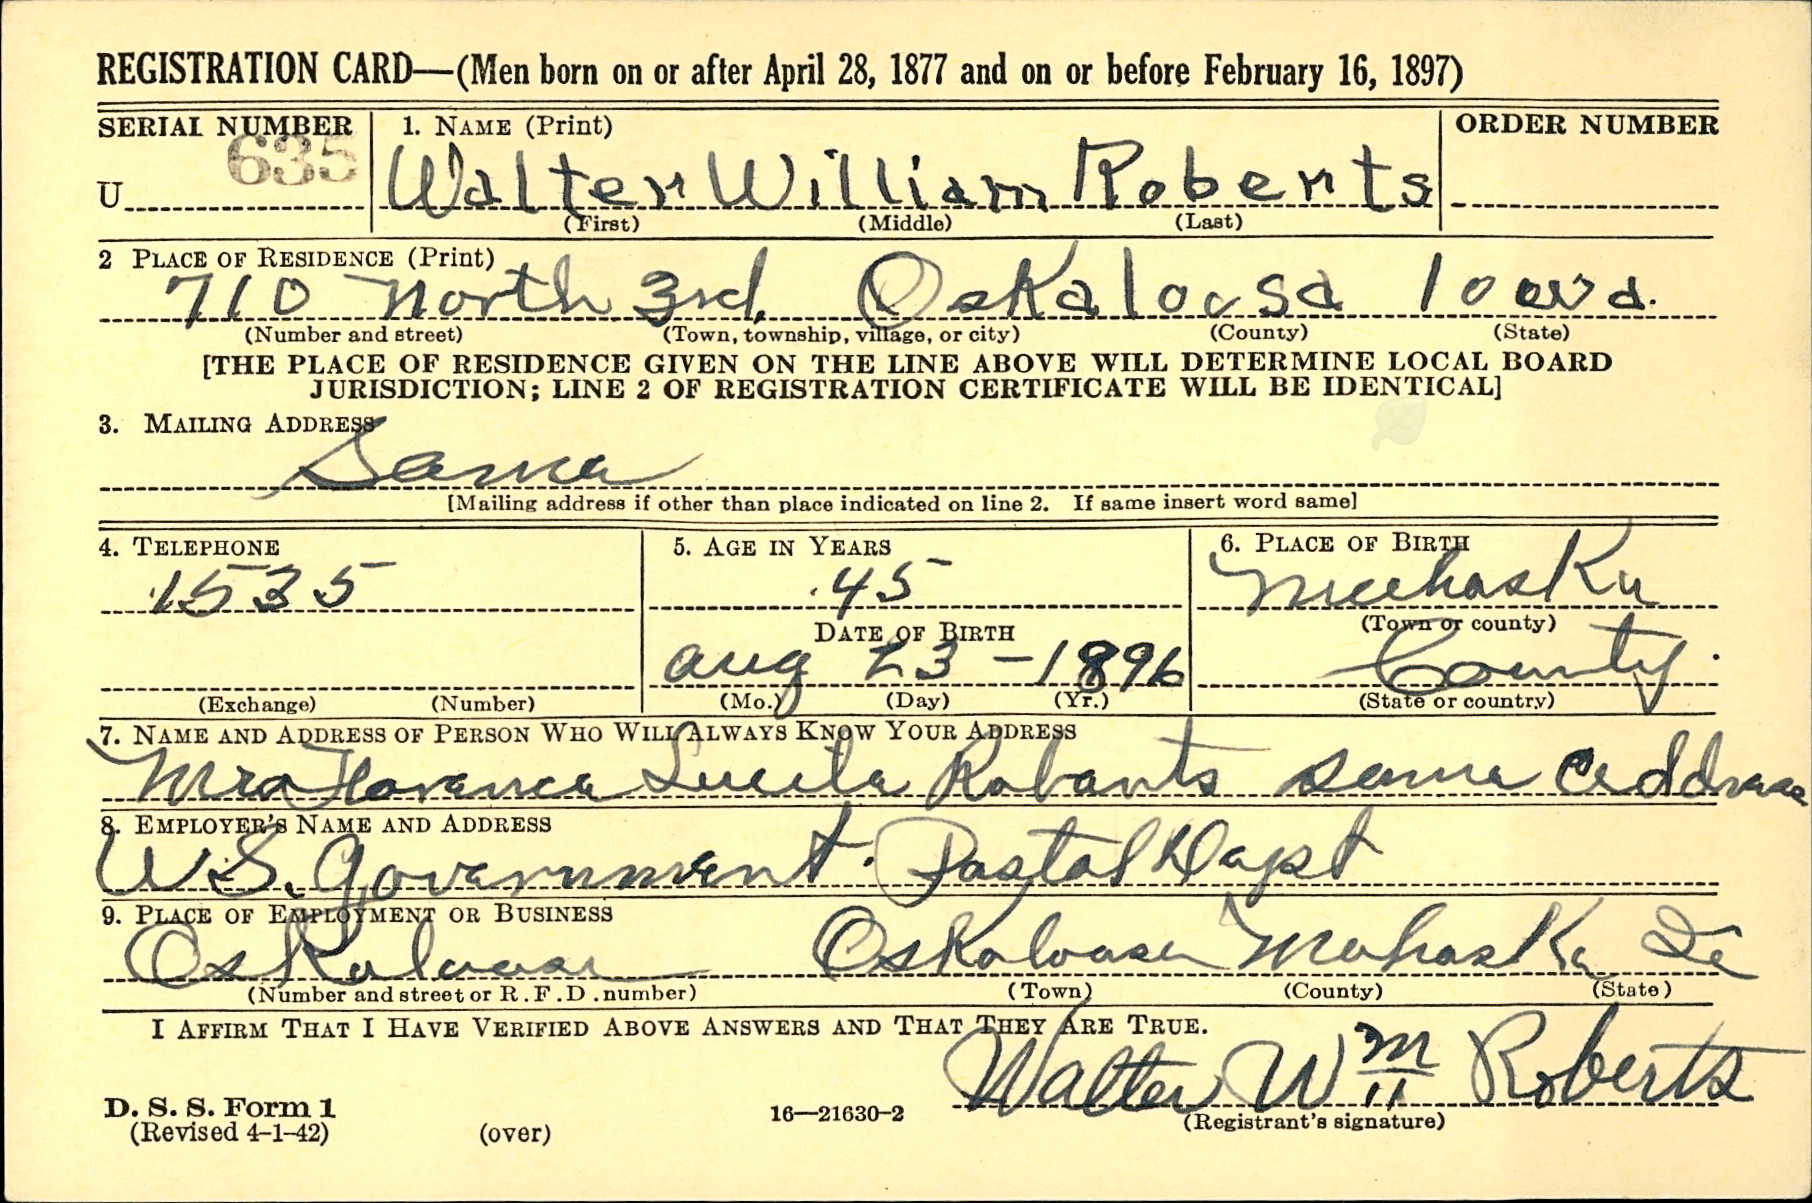 REGISTRATION CARD—(Men born on or after April 28, 1877 and on or before February 16, 1897)
SERIAL NUMBER 1. NAME (Print) ORDER NUMBER
635
U Walter William Roberts
(First) (Middle) (Last)
2 PLACE OF RESIDENCE (Print)
710 North 3rd, Oskaloosa Iowa.
(Number and street) (Town, township, village, or city) (County) (State)
[THE PLACE OF RESIDENCE GIVEN ON THE LINE ABOVE WILL DETERMINE LOCAL BOARD
JURISDICTION; LINE 2 OF REGISTRATION CERTIFICATE WILL BE IDENTICAL]
3. MAILING ADDRESS
Same
[Mailing address if other than place indicated on line 2. If same insert word same]
4. TELEPHONE 5. AGE IN YEARS 6. PLACE OF BIRTH
1535 45 Mahaska
(Town or county)
DATE OF BIRTH
Aug 23-1896 County.
(Exchange) (Number) (Mo.) (Day) (Yr.) (State or country)
7. NAME AND ADDRESS OF PERSON WHO WILL ALWAYS KNOW YOUR ADDRESS
Mrs Florence Lucile Roberts same address
8. EMPLOYER'S NAME AND ADDRESS
U.S. Government. Postal Dept
9. PLACE OF EMPLOYMENT OR BUSINESS
Oskaloosa Oskaloosa Mahaska Ia
(Number and street or R.F.D. number) (Town) (County) (State)
I AFFIRM THAT I HAVE VERIFIED ABOVE ANSWERS AND THAT THEY ARE TRUE.
Walter Wm Roberts
D. S. S. Form 1 16—21630-2 (Registrant's signature)
(Revised 4-1-42) (over)